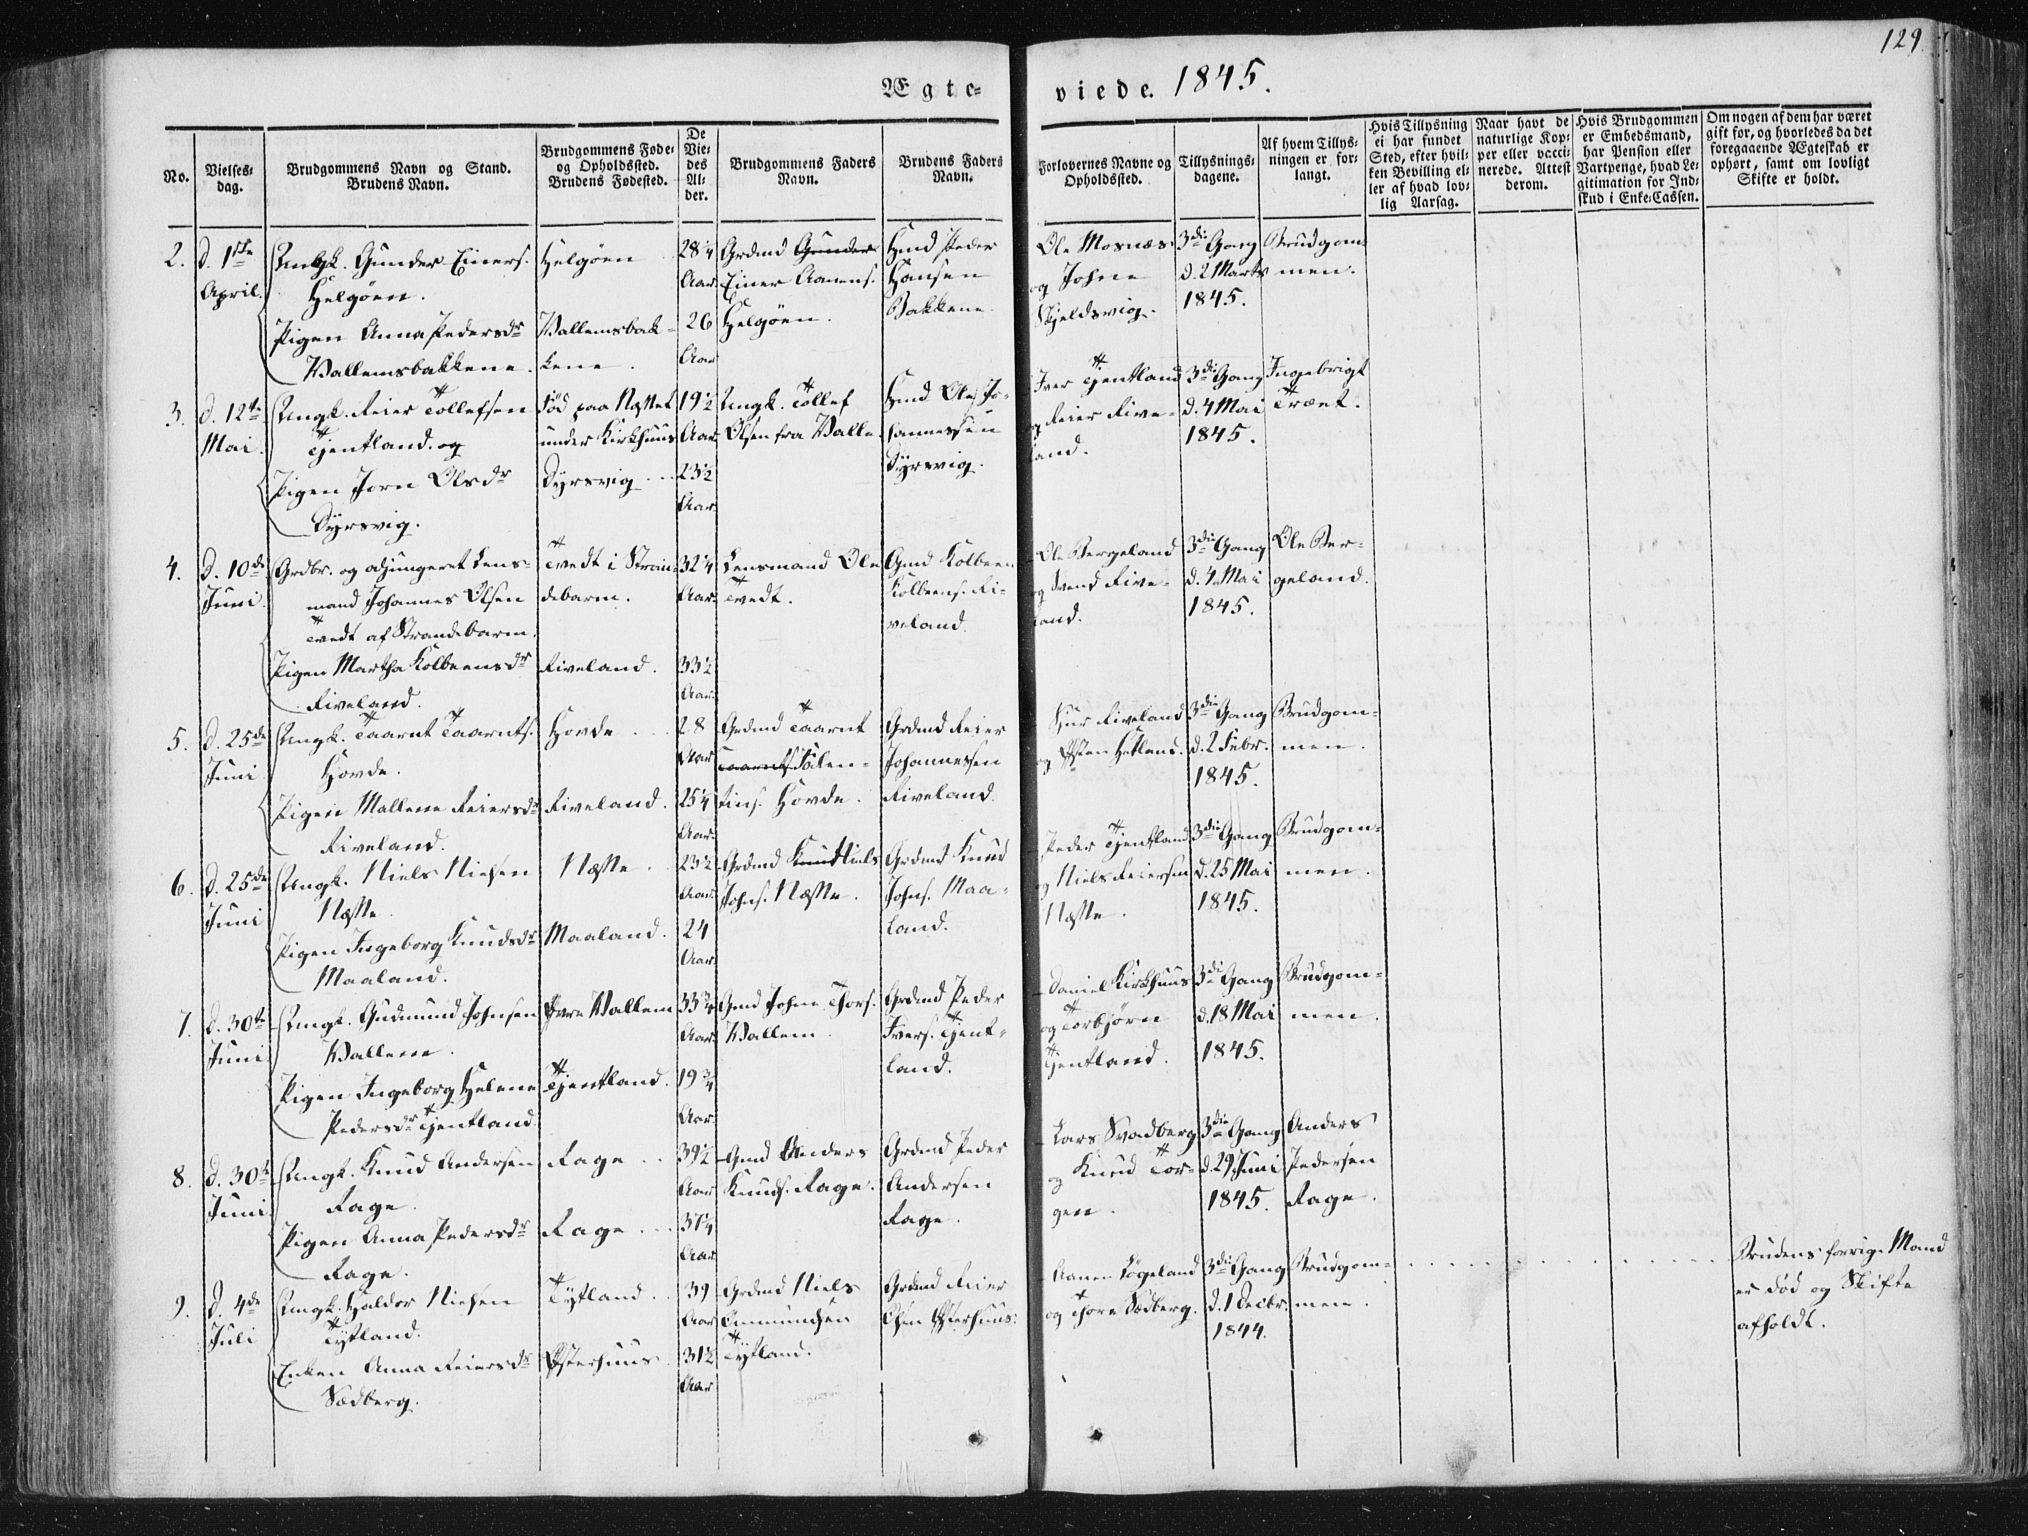 129.
Ægte-
viede. 1845.
No.
Vielses-
dag.
Brudgommens Navn og Stand.
Brudens Navn.
Brudgommens Føde-
og Opholdssted.
Brudens Fødested.
De
Vie-
des
Al-
der.
Brudgommens Faders
Navn.
Brudens Faders
Navn.
Forlovernes Navne og
Opholdssted.
Tillysnings-
dagene.
Af hvem Tillys-
ningen er for-
langt.
Hvis Tillysning
ei har fundet
Sted, efter hvil-
ken Bevilling el-
ler af hvad lov-
lig Aarsag.
Naar havt de
naturlige Kop-
per eller vacci-
nerede. Attest
derom.
Hvis Brudgommen
er Embedsmand,
har Pension eller
Vartpenge, hvad Le-
gitimation for Ind-
skud i Enke-Cassen.
Om nogen af dem har været
gift før, og hvorledes da det
foregaaende Ægteskab er
ophørt, samt om lovligt
Skifte er holdt.
2.
d. 1ste
April.
Ungk. Gunder Einers.
Helgøen.
Pigen Anna Pedersdr
Vallemsbakkene.
Helgøen
Vallemsbak-
kene.
28 1/4
Aar.
26
Aar
Grdmd Gunder
Einer Aanens.
Helgøen.
Hmd Peder
Hansen
Bakkene
Ole Mosnæs
og Johne
Skjeldsvig.
3die Gang
d. 2 Marts
1845.
Brudgom-
men.
3.
d. 12te
Mai.
Ungk. Reier Tollefsen
Tjentland. og
Pigen Jorn Olsdr
Dyrsvig.
Fød paa Næsset
under Kirkhuus
Dyrsvig
19 1/2
Aar
23 1/2
Aar
Ungk. Tollef
Olsen fra Valle
Hmd Ole Jo-
hannessen
Dyrsvig.
Iver Tjentland
og Reier Rive-
land.
3die Gang
d. 4 Mai
1845.
Ingebrigt
Trænt.
4.
d. 10de
Juni.
Grdbr. og adjungeret Lens-
mand Johannes Olsen
Tvedt af Strandebarm.
Pigen Martha Kolbeensdr
Riveland.
Tvedt i Stran-
debarm.
Riveland.
32 1/4
Aar.
33 1/2
Aar.
Lensmand Ole
Tvedt.
Gmd Kolbeen
Kolbeens. Ri-
veland
Ole Bergeland
og Svend Rive-
land.
3die Gang
d. 4 Mai
1845.
Ole Ber-
geland.
5.
d. 25de
Juni
Ungk. Taarnt Taarnts.
Hovde.
Pigen Mallene Reiersdr
Riveland.
Hovde
Riveland.
28
Aar
25 1/4
Aar.
Grdmd Taarnt
Taarnts. Valen-
tins. Hovde.
Grdmd Reier
Johannesen
Riveland
Sjur Riveland
og Østen Hetland.
3die Gang
d. 2 Febr.
1845.
Brudgom-
men.
6.
d. 25de
Juni
Ungk. Niels Nielsen
Næsse
Pigen Ingeborg Knudsdr
Maaland.
Næsse
Maaland.
23 1/2
Aar.
24
Aar
Grdmd Knud Niels
Johns. Næsse.
Grdmd Knud
Johns. Maa-
land.
Peder Tjentland
og Niels Reiersen
Næsse.
3die Gang
d. 25 Mai
1845.
Brudgom-
men.
7.
d. 30te
Juni
Ungk. Gudmund Johnsen
Vallem.
Pigen Ingeborg Helene
Pedersdr Tjentland
Øvre Vallem
Tjentland.
33 3/4
Aar
19 3/4
Aar.
Gmd Johne Thors.
Vallem.
Grdmd Peder
Ivers. Tjent-
land.
Daniel Kirkhuus
og Torbjørn
Tjentland.
3die Gang
d. 18 Mai
1845.
Brudgom-
men.
8.
d. 30te
Juni
Ungk. Knud Andersen
Rage.
Pigen Anna Pedersdr
Rage.
Rage
Rage
39 1/2
Aar
37 1/4
Aar
Gmd Anders
Knuds. Rage.
Grdmd Peder
Andersen
Rage.
Lars Svadberg
og Knud Tor-
gen.
3die Gang
d. 29 Juni
1845.
Anders
Pedersen
Rage.
9.
d. 4de
Juli
Ungk. Haldor Nielsen
Tytland.
Enken Anna Reiersdr
Sædberg.
Tytland
Østerhuus
39
Aar
31 1/2
Aar
Grdmd Niels
Ommundsen
Tytland.
Grdmd Reier
Olsen Østerhuus.
Aanen Røgeland
og Thore Sædberg.
3die Gang
d. 1 Decbr.
1844.
Brudgom-
men.
Brudens forrige Mand
er død og Skifte
afholdt.